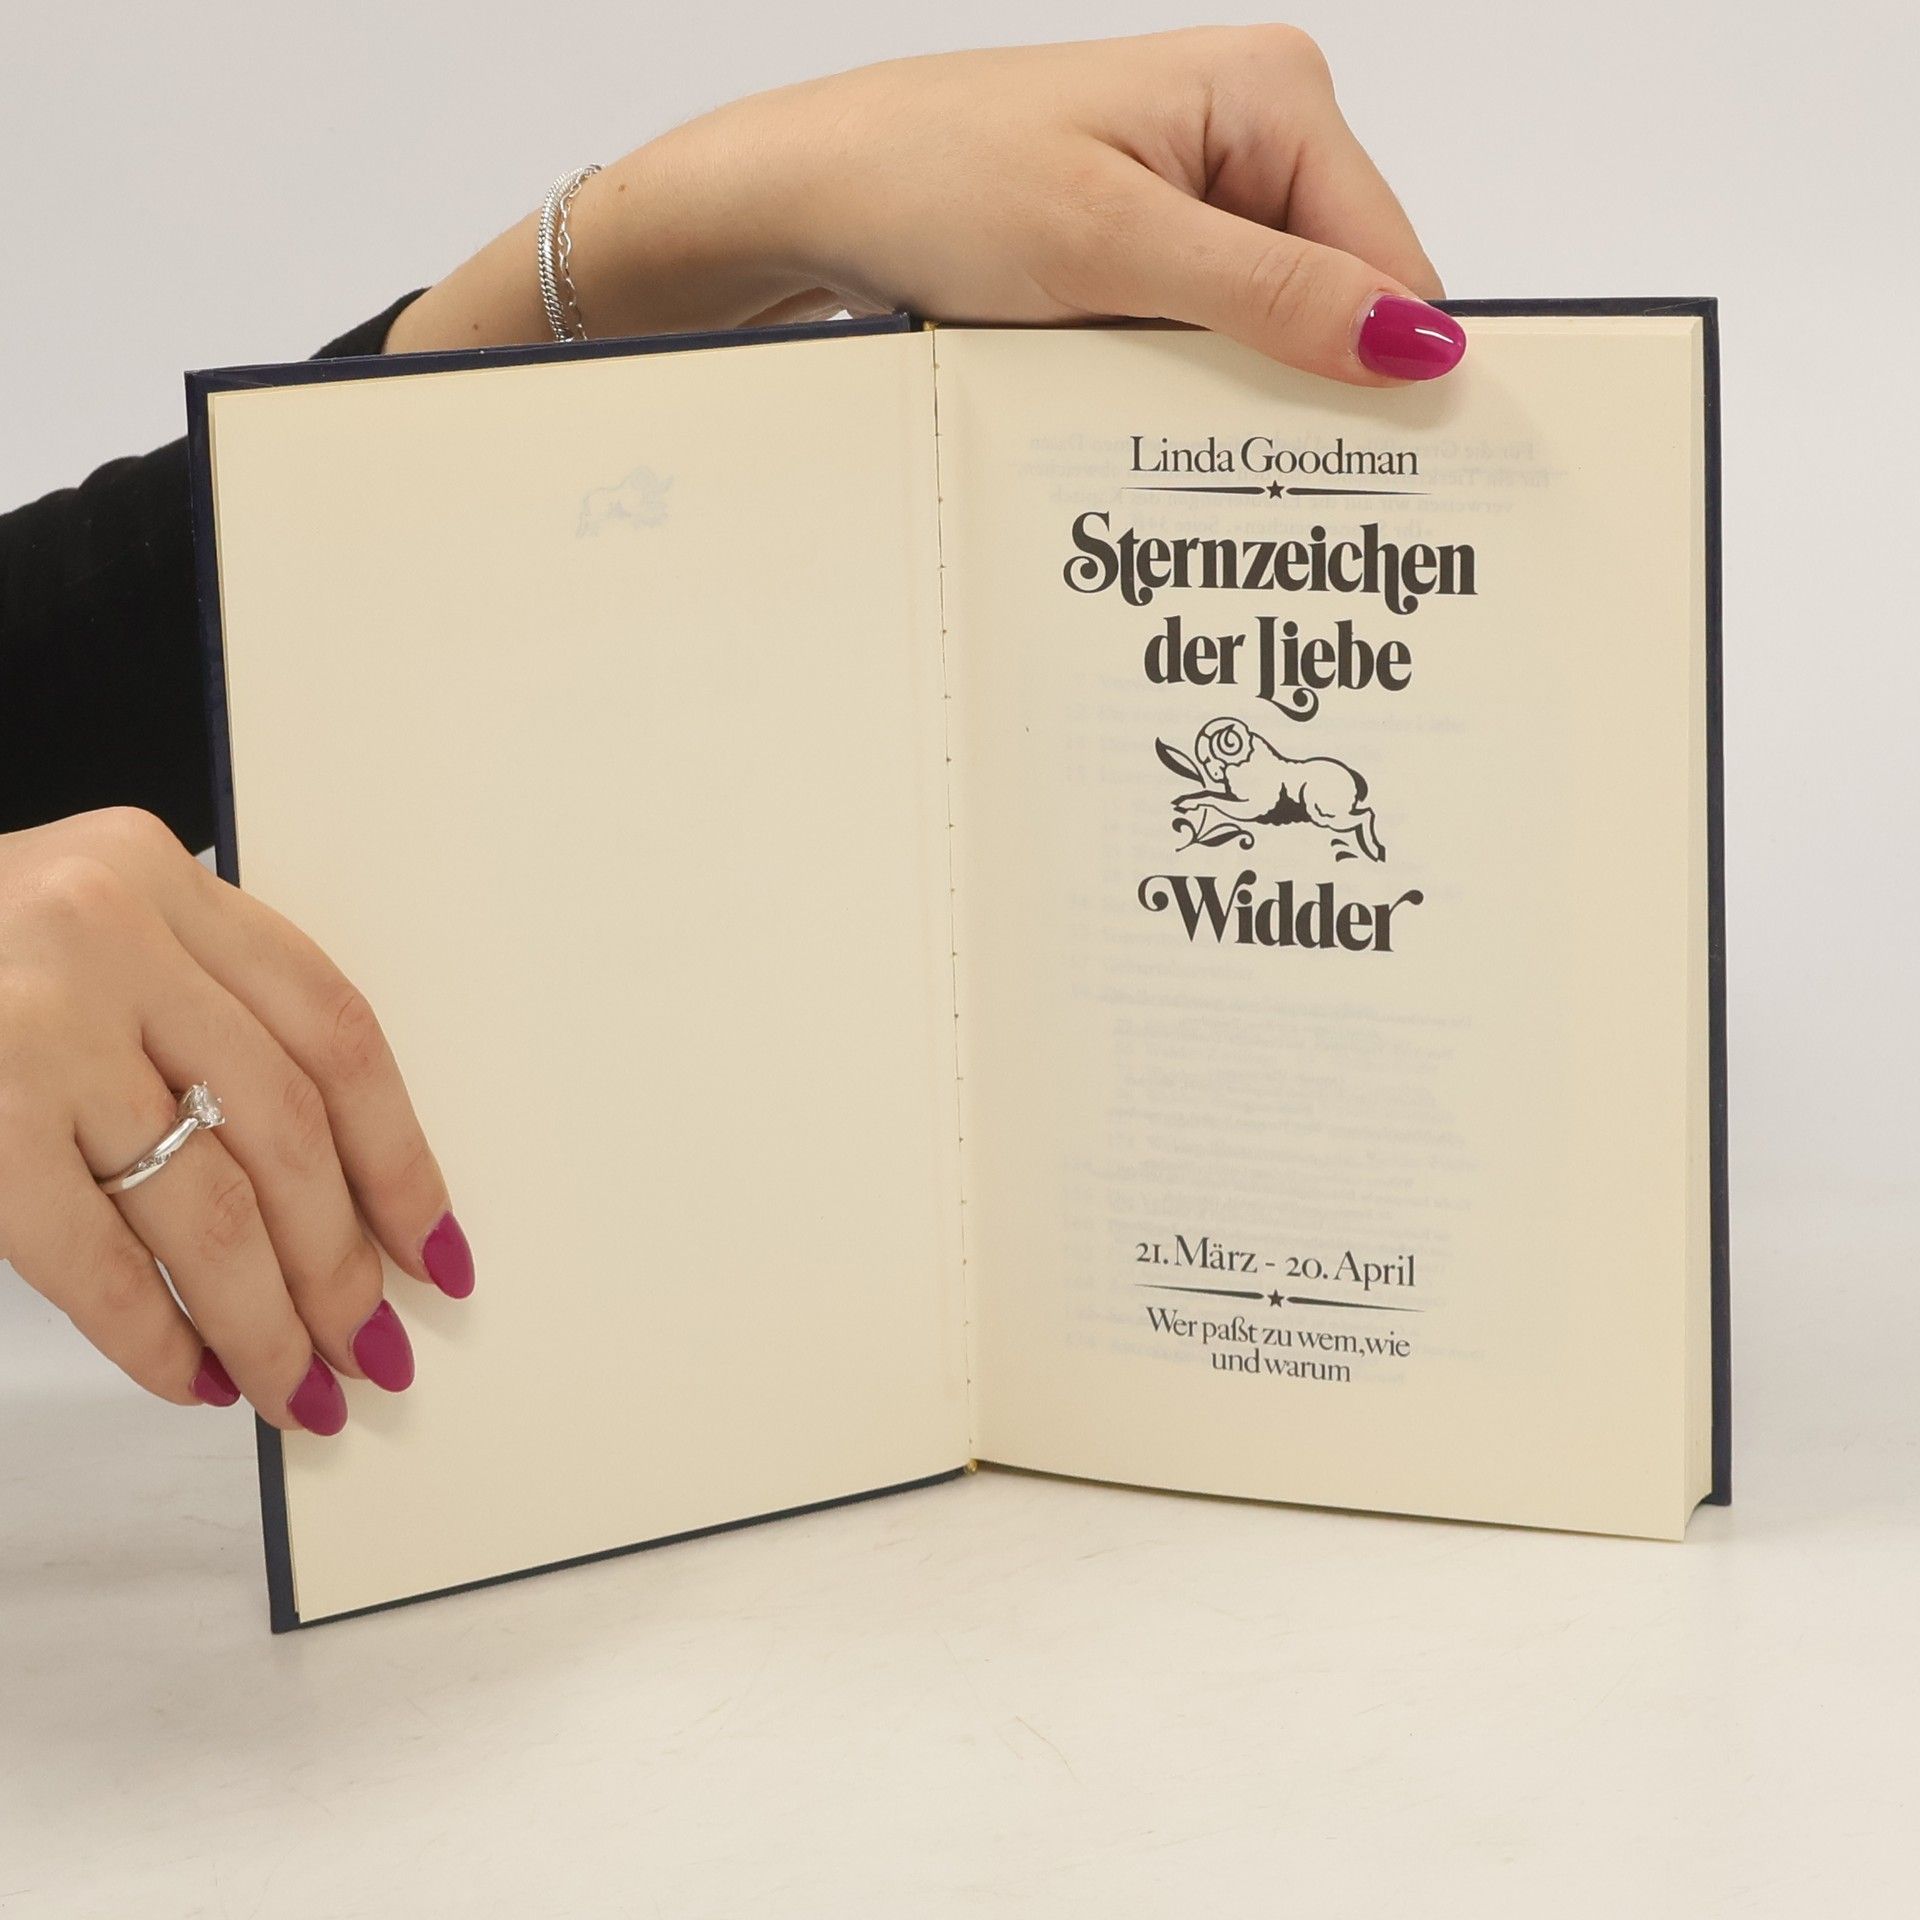 Linda Goodman
Sternzeichen
der Liebe
Widder
21. März - 20. April
Wer paßt zu wem, wie
und warum